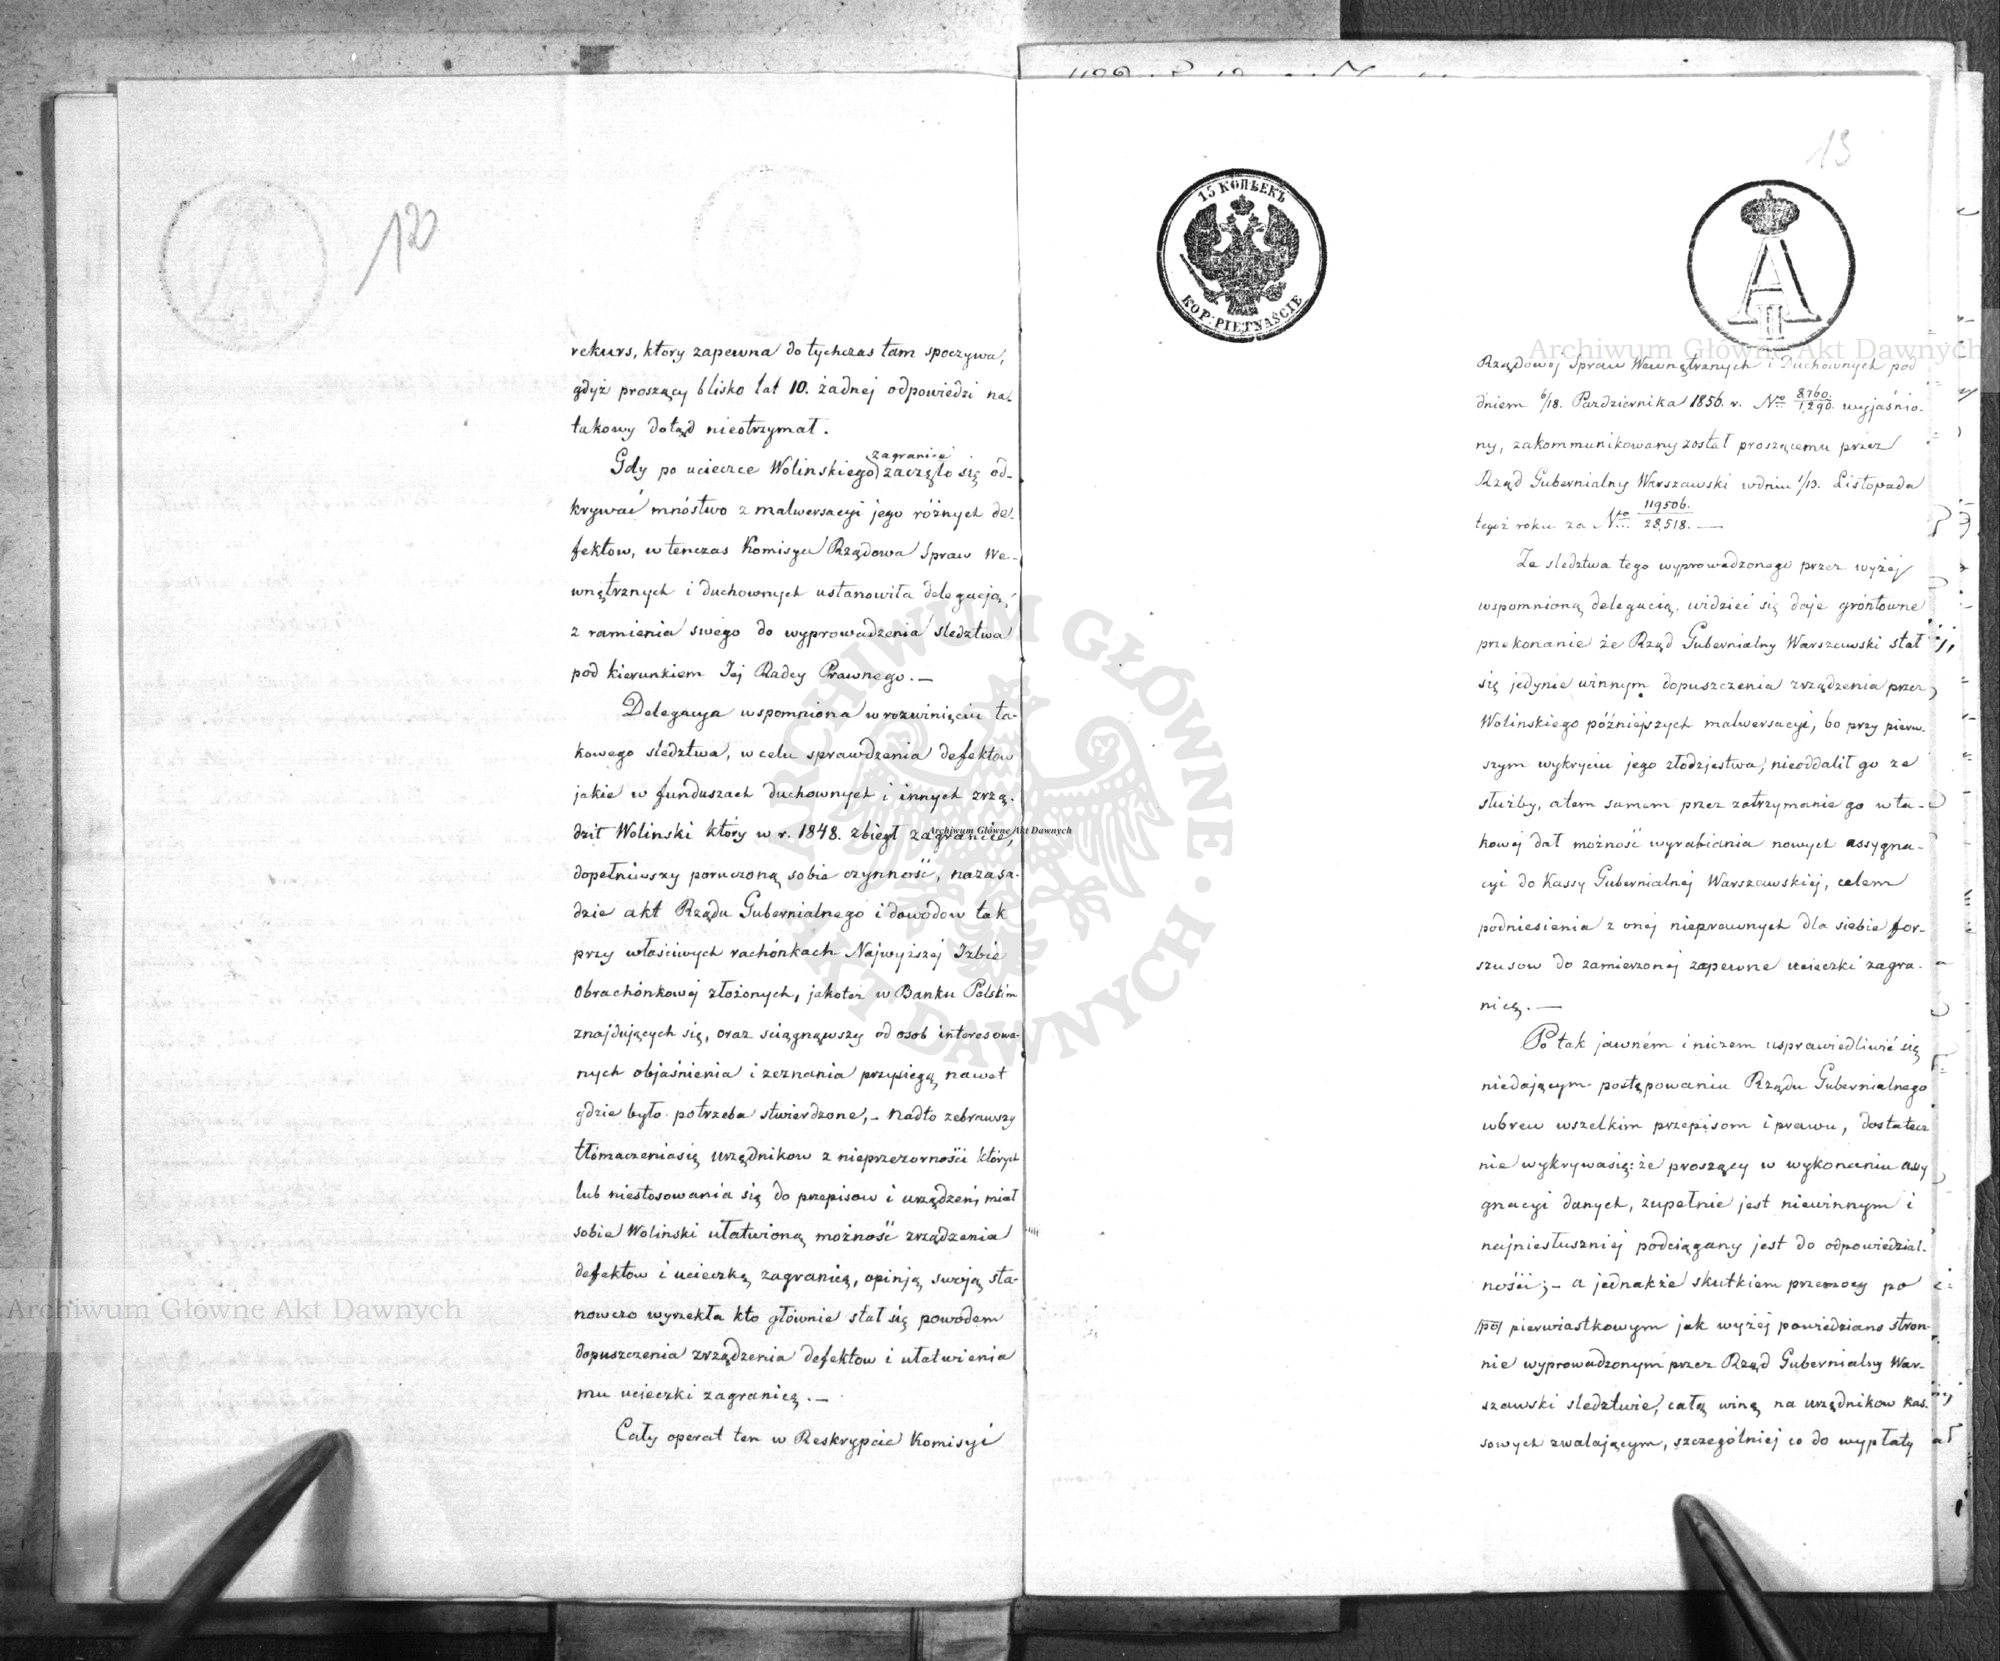 120
rekurs, który zapewna do tychczas tam spoczywa,
gdyż proszący blisko lat 10. żadnej odpowiedzi na-
takowy dotąd nieotrzymał.
zagranicę
Gdy po ucieczce Wolinskiego zaczęło się od-
krywać mnóstwo z malwersacyi jego różnych de-
fektow, w tenczas Komisya Rządowa Spraw We-
wnętrznych i duchownych ustanowiła delegacją,
z ramienia swego do wyprowadzenia sledztwa
pod kierunkiem Jej Radcy Prawnego. —
Delegacya wspomniona w rozwinięciu ta-
kowego sledztwa, w celu sprawdzenia defektow
jakie w funduszach duchownych i innych zrzą-
dził Wolinski który w r. 1848. zbiegł zagranicę,
dopełniwszy poruczoną sobie czynność, nazasa-
dzie akt Rządu Gubernialnego i dowodow tak
przy właściwych rachónkach Najwyższej Izbie
Obrachónkowej złożonych, jakoteż w Banku Polskim
znajdujących się, oraz sciągnąwszy od osob interesowa-
nych objaśnienia i zeznania przysięgą nawet
gdzie było potrzeba stwierdzone, – nadto zebrawszy
tłómaczeniasię urzędnikow z nieprzezorności których
lub niestosowania się do przepisow i urządzeń, miał
sobie Wolinski ułatwioną możność zrządzenia
defektow i ucieczką zagranicą, opinją swoją sta-
nowczo wyrzekła kto głównie stał się powodem
dopuszczenia zrządzenia defektow i ułatwienia
mu ucieczki zagranicą. —
Cały operat ten w Reskrypcie Komisyi
13
15 КОПѢЕКЪ
KOP. PIĘTNAŚCIE
A II
Rządowej Spraw Wewnętrznych i Duchownych pod
dniem 6/18. Pazdziernika 1856. r. Nro 8,760./1,290. wyjaśnio-
ny, zakommunikowany został proszącemu przez
Rząd Gubernialny Warszawski wdniu 1/13. Listopada
tegoż roku za Nro 119506./28,518. —
Ze sledztwa tego wyprowadzonego przez wyżej
wspomnioną delegacią, widzieć się daje gróntowne
przekonanie że Rząd Gubernialny Warszawski stał
się jedynie winnym dopuszczenia zrządzenia przez
Wolinskiego późniejszych malwersacyi, bo przy pierw-
szym wykryciu jego złodziejstwa, nieoddalił go ze
służby, atem samem przez zatrzymanie go w ta-
kowej dał możność wyrabiania nowych assygna-
cyi do Kassy Gubernialnej Warszawskiej, celem
podniesienia z onej nieprawnych dla siebie for-
szusow do zamierzonej zapewne ucieczki zagra-
nicę. —
Po tak jawném i niczem usprawiedliwić się
niedającym postępowaniu Rządu Gubernialnego
wbrew wszelkim przepisom i prawu, dostatecz
nie wykrywasię: że proszący w wykonaniu assy
gnacyi danych, zupełnie jest niewinnym i
najniesłuszniej podciągany jest do odpowiedzial-
ności; – a jednakże skutkiem przemocy po
/po/ pierwiastkowym jak wyżej powiedziano stron-
nie wyprowadzonym przez Rząd Gubernialny War-
szawski sledztwie, całą winą na urzędnikow kas-
sowych zwalającym, szczególniej co do wypłaty
Archiwum Główne Akt Dawnych
Archiwum Główne Akt Dawnych
Archiwum Główne Akt Dawnych
ARCHIWUM GŁÓWNE · AKT DAWNYCH ·